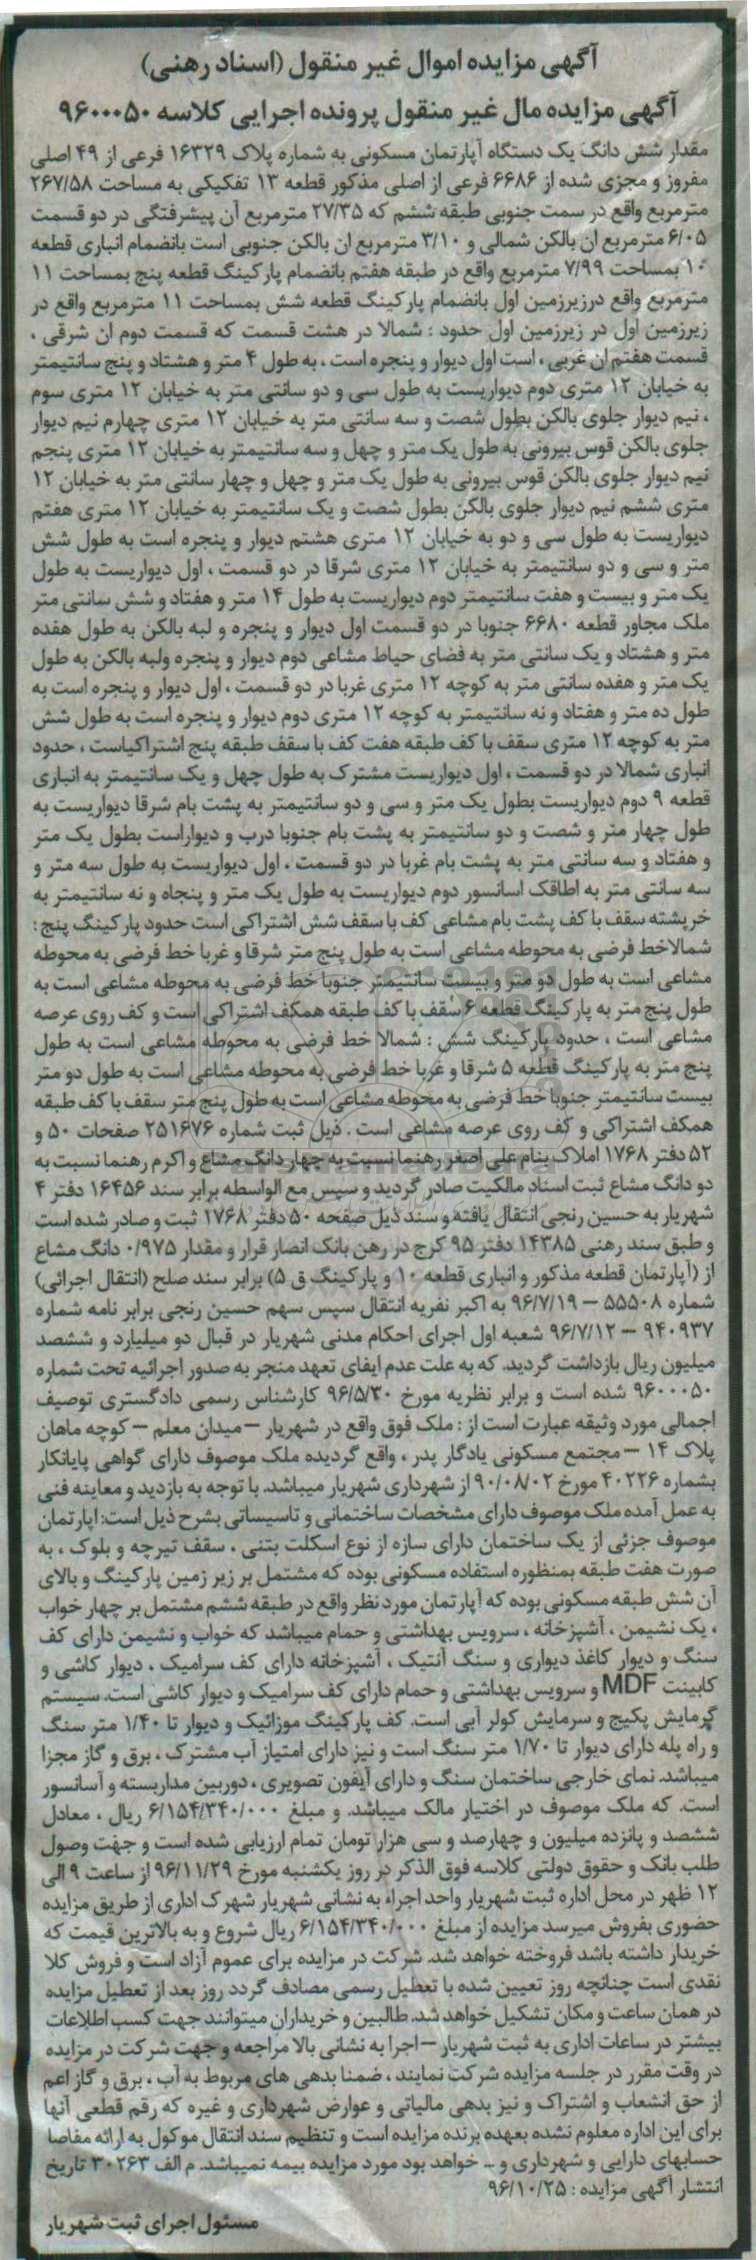 آگهی مزایده اموال غیر منقول (اسناد رهنی)
آگهی مزایده مال غیر منقول پرونده اجرایی کلاسه ۹۶۰۰۰۵۰
مقدار شش دانگ یک دستگاه آپارتمان مسکونی به شماره پلاک ۱۶۳۲۹ فرعی از ۴۹ اصلی
مفروز و مجزی شده از ۶۶۸۶ فرعی از اصلی مذکور قطعه ۱۳ تفکیکی به مساحت ۲۶۷/۵۸
مترمربع واقع در سمت جنوبی طبقه ششم که ۲۷/۳۵ مترمربع آن پیشرفتگی در دو قسمت
۶/۰۵ مترمربع ان بالکن شمالی و ۳/۱۰ مترمربع ان بالکن جنوبی است بانضمام انباری قطعه
۱۰ بمساحت ۷/۹۹ مترمربع واقع در طبقه هفتم بانضمام پارکینگ قطعه پنج بمساحت ۱۱
مترمربع واقع درزیرزمین اول بانضمام پارکینگ قطعه شش بمساحت ۱۱ مترمربع واقع در
زیرزمین اول در زیرزمین اول حدود : شمالا در هشت قسمت که قسمت دوم ان شرقی ،
قسمت هفتم ان غربی ، است اول دیوار و پنجره است ، به طول ۴ متر و هشتاد و پنج سانتیمتر
به خیابان ۱۲ متری دوم دیواریست به طول سی و دو سانتی متر به خیابان ۱۲ متری سوم
، نیم دیوار جلوی بالکن بطول شصت و سه سانتی متر به خیابان ۱۲ متری چهارم نیم دیوار
جلوی بالکن قوس بیرونی به طول یک متر و چهل و سه سانتیمتر به خیابان ۱۲ متری پنجم
نیم دیوار جلوی بالکن قوس بیرونی به طول یک متر و چهل و چهار سانتی متر به خیابان ۱۲
متری ششم نیم دیوار جلوی بالکن بطول شصت و یک سانتیمتر به خیابان ۱۲ متری هفتم
دیواریست به طول سی و دو به خیابان ۱۲ متری هشتم دیوار و پنجره است به طول شش
متر و سی و دو سانتیمتر به خیابان ۱۲ متری شرقا در دو قسمت ، اول دیواریست به طول
یک متر و بیست و هفت سانتیمتر دوم دیواریست به طول ۱۴ متر و هفتاد و شش سانتی متر
ملک مجاور قطعه ۶۶۸۰ جنوبا در دو قسمت اول دیوار و پنجره و لبه بالکن به طول هفده
متر و هشتاد و یک سانتی متر به فضای حیاط مشاعی دوم دیوار و پنجره ولبه بالکن به طول
یک متر و هفده سانتی متر به کوچه ۱۲ متری غربا در دو قسمت ، اول دیوار و پنجره است به
طول ده متر و هفتاد و نه سانتیمتر به کوچه ۱۲ متری دوم دیوار و پنجره است به طول شش
متر به کوچه ۱۲ متری سقف با کف طبقه هفت کف با سقف طبقه پنج اشتراکیاست ، حدود
انباری شمالا در دو قسمت ، اول دیواریست مشترک به طول چهل و یک سانتیمتر به انباری
قطعه ۹ دوم دیواریست بطول یک متر و سی و دو سانتیمتر به پشت بام شرقا دیواریست به
طول چهار متر و شصت و دو سانتیمتر به پشت بام جنوبا درب و دیواراست بطول یک متر
و هفتاد و سه سانتی متر به پشت بام غربا در دو قسمت ، اول دیواریست به طول سه متر و
سه سانتی متر به اطاقک اسانسور دوم دیواریست به طول یک متر و پنجاه و نه سانتیمتر به
خرپشته سقف با کف پشت بام مشاعی کف با سقف شش اشتراکی است حدود پارکینگ پنج :
شمالاخط فرضی به محوطه مشاعی است به طول پنج متر شرقا و غربا خط فرضی به محوطه
مشاعی است به طول دو متر و بیست سانتیمتر جنوبا خط فرضی به محوطه مشاعی است به
طول پنج متر به پارکینگ قطعه ۶ سقف با کف طبقه همکف اشتراکی است و کف روی عرصه
مشاعی است ، حدود پارکینگ شش : شمالا خط فرضی به محوطه مشاعی است به طول
پنج متر به پارکینگ قطعه ۵ شرقا و غربا خط فرضی به محوطه مشاعی است به طول دو متر
بیست سانتیمتر جنوبا خط فرضی به محوطه مشاعی است به طول پنج متر سقف با کف طبقه
همکف اشتراکی و کف روی عرصه مشاعی است . ذیل ثبت شماره ۲۵۱۶۷۶ صفحات ۵۰ و
۵۲ دفتر ۱۷۶۸ املاک بنام علی اصغر رهنما نسبت به چهار دانگ مشاع و اکرم رهنما نسبت به
دو دانگ مشاع ثبت اسناد مالکیت صادر گردید و سپس مع الواسطه برابر سند ۱۶۴۵۶ دفتر ۴
شهریار به حسین رنجی انتقال یافته و سند ذیل صفحه ۵۰ دفتر ۱۷۶۸ ثبت و صادر شده است
و طبق سند رهنی ۱۴۳۸۵ دفتر ۹۵ کرج در رهن بانک انصار قرار و مقدار ۰/۹۷۵ دانگ مشاع
از (آپارتمان قطعه مذکور و انباری قطعه ۱۰ و پارکینگ ق ۵) برابر سند صلح (انتقال اجرائی)
شماره ۵۵۵۰۸ – ۹۶/۷/۱۹ به اکبر نفریه انتقال سپس سهم حسین رنجی برابر نامه شماره
۹۴۰۹۳۷ – ۹۶/۷/۱۲ شعبه اول اجرای احکام مدنی شهریار در قبال دو میلیارد و ششصد
میلیون ریال بازداشت گردید. که به علت عدم ایفای تعهد منجر به صدور اجرائیه تحت شماره
۹۶۰۰۰۵۰ شده است و برابر نظریه مورخ ۹۶/۵/۳۰ کارشناس رسمی دادگستری توصیف
اجمالی مورد وثیقه عبارت است از : ملک فوق واقع در شهریار – میدان معلم – کوچه ماهان
پلاک ۱۴ – مجتمع مسکونی یادگار پدر ، واقع گردیده ملک موصوف دارای گواهی پایانکار
بشماره ۴۰۲۲۶ مورخ ۹۰/۰۸/۰۲ از شهرداری شهریار میباشد. با توجه به بازدید و معاینه فنی
به عمل آمده ملک موصوف دارای مشخصات ساختمانی و تاسیساتی بشرح ذیل است: اپارتمان
موصوف جزئی از یک ساختمان دارای سازه از نوع اسکلت بتنی ، سقف تیرچه و بلوک ، به
صورت هفت طبقه بمنظوره استفاده مسکونی بوده که مشتمل بر زیر زمین پارکینگ و بالای
آن شش طبقه مسکونی بوده که آپارتمان مورد نظر واقع در طبقه ششم مشتمل بر چهار خواب
، یک نشیمن ، آشپزخانه ، سرویس بهداشتی و حمام میباشد که خواب و نشیمن دارای کف
سنگ و دیوار کاغذ دیواری و سنگ آنتیک ، آشپزخانه دارای کف سرامیک ، دیوار کاشی و
کابینت MDF و سرویس بهداشتی و حمام دارای کف سرامیک و دیوار کاشی است. سیستم
گرمایش پکیج و سرمایش کولر آبی است. کف پارکینگ موزائیک و دیوار تا ۱/۴۰ متر سنگ
و راه پله دارای دیوار تا ۱/۷۰ متر سنگ است و نیز دارای امتیاز آب مشترک ، برق و گاز مجزا
میباشد. نمای خارجی ساختمان سنگ و دارای آیفون تصویری ، دوربین مداربسته و آسانسور
است. که ملک موصوف در اختیار مالک میباشد. و مبلغ ۶/۱۵۴/۳۴۰/۰۰۰ ریال ، معادل
ششصد و پانزده میلیون و چهارصد و سی هزار تومان تمام ارزیابی شده است و جهت وصول
طلب بانک و حقوق دولتی کلاسه فوق الذکر در روز یکشنبه مورخ ۹۶/۱۱/۲۹ از ساعت ۹ الی
۱۲ ظهر در محل اداره ثبت شهریار واحد اجراء به نشانی شهریار شهرک اداری از طریق مزایده
حضوری بفروش میرسد مزایده از مبلغ ۶/۱۵۴/۳۴۰/۰۰۰ ریال شروع و به بالاترین قیمت که
خریدار داشته باشد فروخته خواهد شد. شرکت در مزایده برای عموم آزاد است و فروش کلا
نقدی است چنانچه روز تعیین شده با تعطیل رسمی مصادف گردد روز بعد از تعطیل مزایده
در همان ساعت و مکان تشکیل خواهد شد. طالبین و خریداران میتوانند جهت کسب اطلاعات
بیشتر در ساعات اداری به ثبت شهریار – اجرا به نشانی بالا مراجعه و جهت شرکت در مزایده
در وقت مقرر در جلسه مزایده شرکت نمایند ، ضمنا بدهی های مربوط به آب ، برق و گاز اعم
از حق انشعاب و اشتراک و نیز بدهی مالیاتی و عوارض شهرداری و غیره که رقم قطعی آنها
برای این اداره معلوم نشده بعهده برنده مزایده است و تنظیم سند انتقال موکول به ارائه مفاصا
حسابهای دارایی و شهرداری و ... خواهد بود مورد مزایده بیمه نمیباشد. م الف ۳۰۲۶۳ تاریخ
انتشار آگهی مزایده : ۹۶/۱۰/۲۵
مسئول اجرای ثبت شهریار